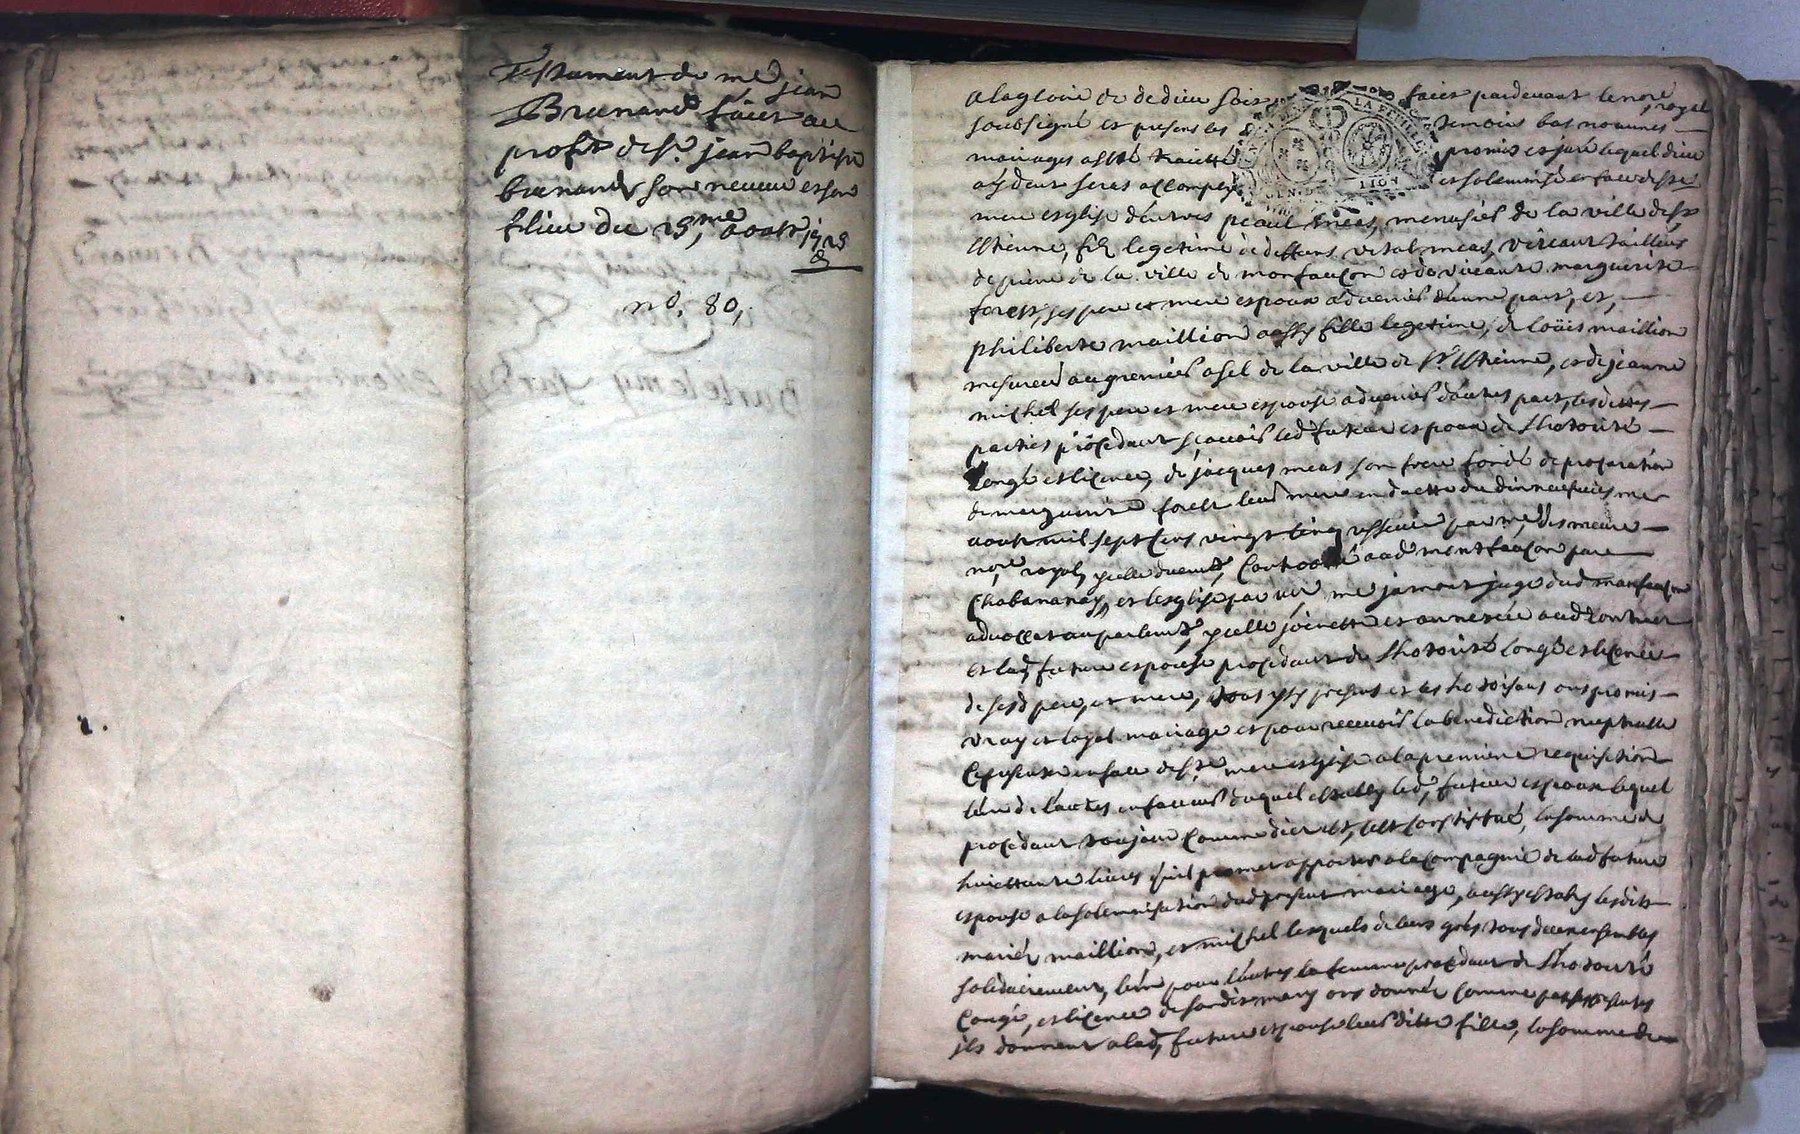 Testament de me jean
Brunand faict au
profit de sr. jean baptiste
brunand son neveu et son
filieu du 25me aoust 1725
no. 80,
A la gloire de dieu soit faict pardevant le nore royal
soubsigné et presens les temoins bas nommés
mariages a esté traitté promis et juré lequel dieu
aydant seras accomply et solemnisé en face de ste
mere esglise d'entres paoul meas, menusier de la ville de st
Estienne, filz legetime de deffunt vital meas, vivant tailleur
de piere de la ville de monfaucon et de vivante marguerite
forest, ses pere et mere espoux advenir d'une part, et,
philiberte maillion aussy fille legetime, de loüis maillion
mesureur au grenier a sel de la ville de st Estienne, et de jeanne
michel ses pere et mere espouse advenir d'autres part, lesdittes
parties procedant sçavoir led. futeur espoux de l'hotorité
congé et licence de jacques meas son frere fondé de procuration
de marguerite forest leur mere en datte du dixneufviesme
aoust mil sept cens vingt cinq reseue par me
nore royal, icelle duemt. controllé aud montfaucon par
Chabananay, et par me jamont juge dud monfaucon
advocat au parlemt, icelle jointte et annexée aud contract
et lad, future espouse procedant de l'hotorité congé et licence
de sesd pere, et mere, tous ysy presens et les hotorisans ont promis
vray et loyal mariage et pour recevoir la benediction nuptialle
se presenter en face de ste. mere esglise a la premiere requisition
l'un de l'autres en faveur duquel estably led, futeur espoux lequel
procedant toujour comme dict est, s'est constitué, la somme de
huictante livres qu'il promet apporter a la compagnie de lad future
espouse a la solemnisation dud present mariage, aussy establys lesdits
mariés maillion, et michel lesquels de leurs grés tous deux ensembles
solidairement, l'un pour l'autres la femme procedant de l'hotorité
congé, et licence de sondit mary ont donné comme par ces presentes
ils donnent a lad, future espouse leur ditte fille, la somme de